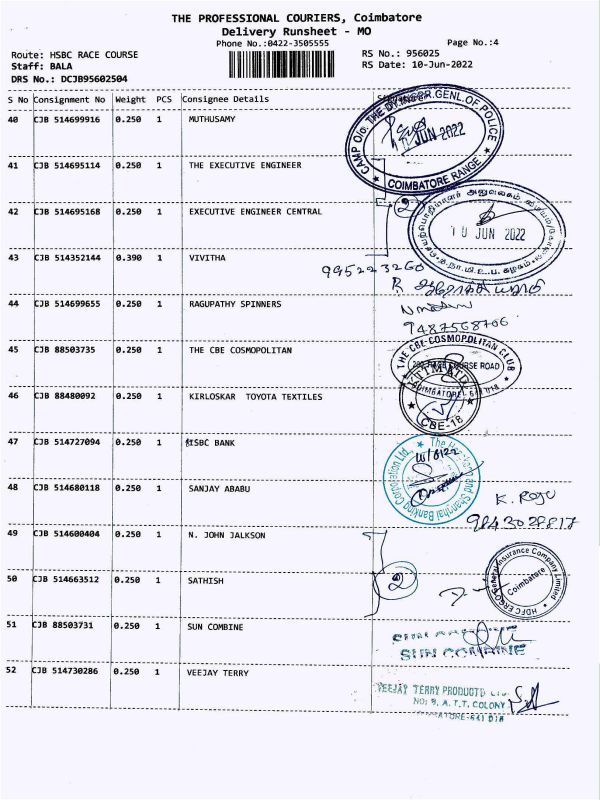 THE PROFESSIONAL COURIERS, Coimbatore
Delivery Runsheet - MO
Phone No.:0422-3505555
Page No.:4
Route: HSBC RACE COURSE
RS No.: 956025
Staff: BALA
RS Date: 10-Jun-2022
DRS No.: DCJB95602504
S No Consignment No Weight PCS Consignee Details
40 CJB 514699916 0.250 1 MUTHUSAMY
CAMP O/o. THE DY. INSPR.GENL.OF POLICE
JUN 2022
COIMBATORE RANGE
41 CJB 514695114 0.250 1 THE EXECUTIVE ENGINEER
42 CJB 514695168 0.250 1 EXECUTIVE ENGINEER CENTRAL
2
10 JUN 2022
43 CJB 514352144 0.390 1 VIVITHA
995223260
R
44 CJB 514699655 0.250 1 RAGUPATHY SPINNERS
9487568706
45 CJB 88503735 0.250 1 THE CBE COSMOPOLITAN
THE CBE COSMOPOLITAN CLUB
RACE COURSE ROAD
COIMBATORE - 641 018
46 CJB 88480092 0.250 1 KIRLOSKAR TOYOTA TEXTILES
CBE-18
47 CJB 514727094 0.250 1 HSBC BANK
The Hongkong and Shanghai Banking Corporation Ltd.,
48 CJB 514680118 0.250 1 SANJAY ABABU
K. Roju
9843028817
49 CJB 514600404 0.250 1 N. JOHN JALKSON
50 CJB 514663512 0.250 1 SATHISH
2
HDFC ERGO General Insurance Company Limited
Coimbatore
51 CJB 88503731 0.250 1 SUN COMBINE
SUN COMBINE
52 CJB 514730286 0.250 1 VEEJAY TERRY
VEEJAY TERRY PRODUCTS LTD.
NO: 9, A.T.T. COLONY
COIMBATORE-641 018